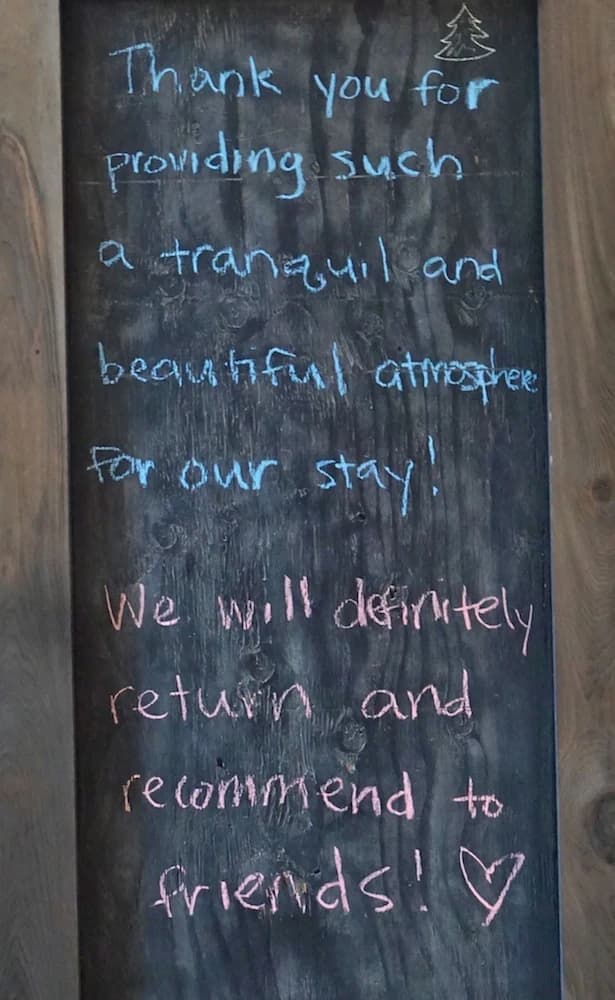 Thank you for
providing such
a tranquil and
beautiful atmosphere
for our stay!
We will definitely
return and
recommend to
friends!